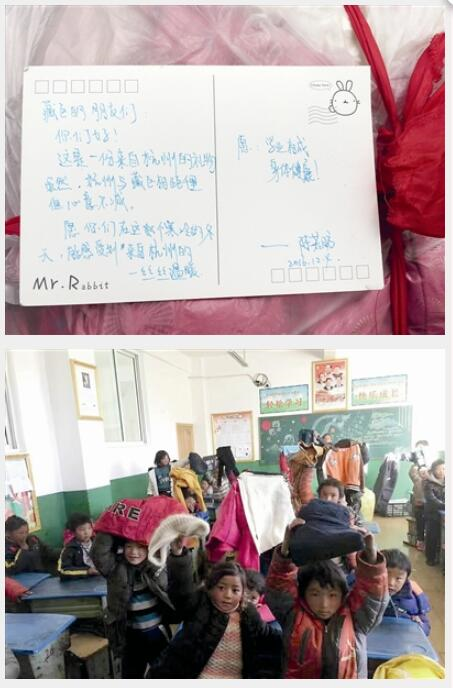 藏区的朋友们:
你们好!
这是一份来自杭州的礼物
虽然,杭州与藏区相隔
但心意不减。
愿你们在这个寒冷的冬
天,能感受到"来自杭州的
一丝丝温暖
Mr.Rabbit
愿:学业有成
身体健康!
2016.12.
轻松学习
快乐成长
RE